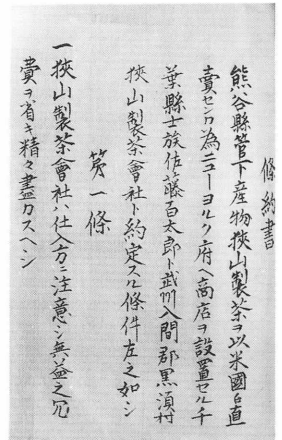 條約書
熊谷縣管下産物狹山製茶ヲ以米國ニ直
賣センカ為ニューヨルク府ヘ商店ヲ設置セル千
葉縣士族佐藤百太郎ト武州入間郡黒須村
狹山製茶會社ト約定スル條件左之如シ
第一條
一狹山製茶會社ハ仕入方ニ注意シ無益之冗
費ヲ省キ精々盡力スヘシ